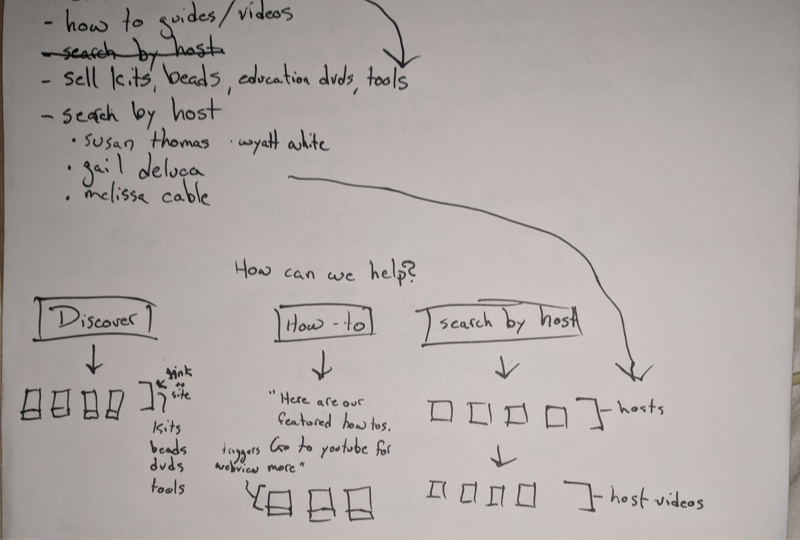 - how to guides/videos
- search by host
- sell kits, beads, education dvds, tools
- search by host
• susan thomas • wyatt white
• gail deluca
• melissa cable
How can we help?
Discover
How-to
search by host
link
to
site
kits
beads
dvds
tools
"Here are our
featured how tos.
Go to youtube for
more"
triggers
webview
hosts
host videos